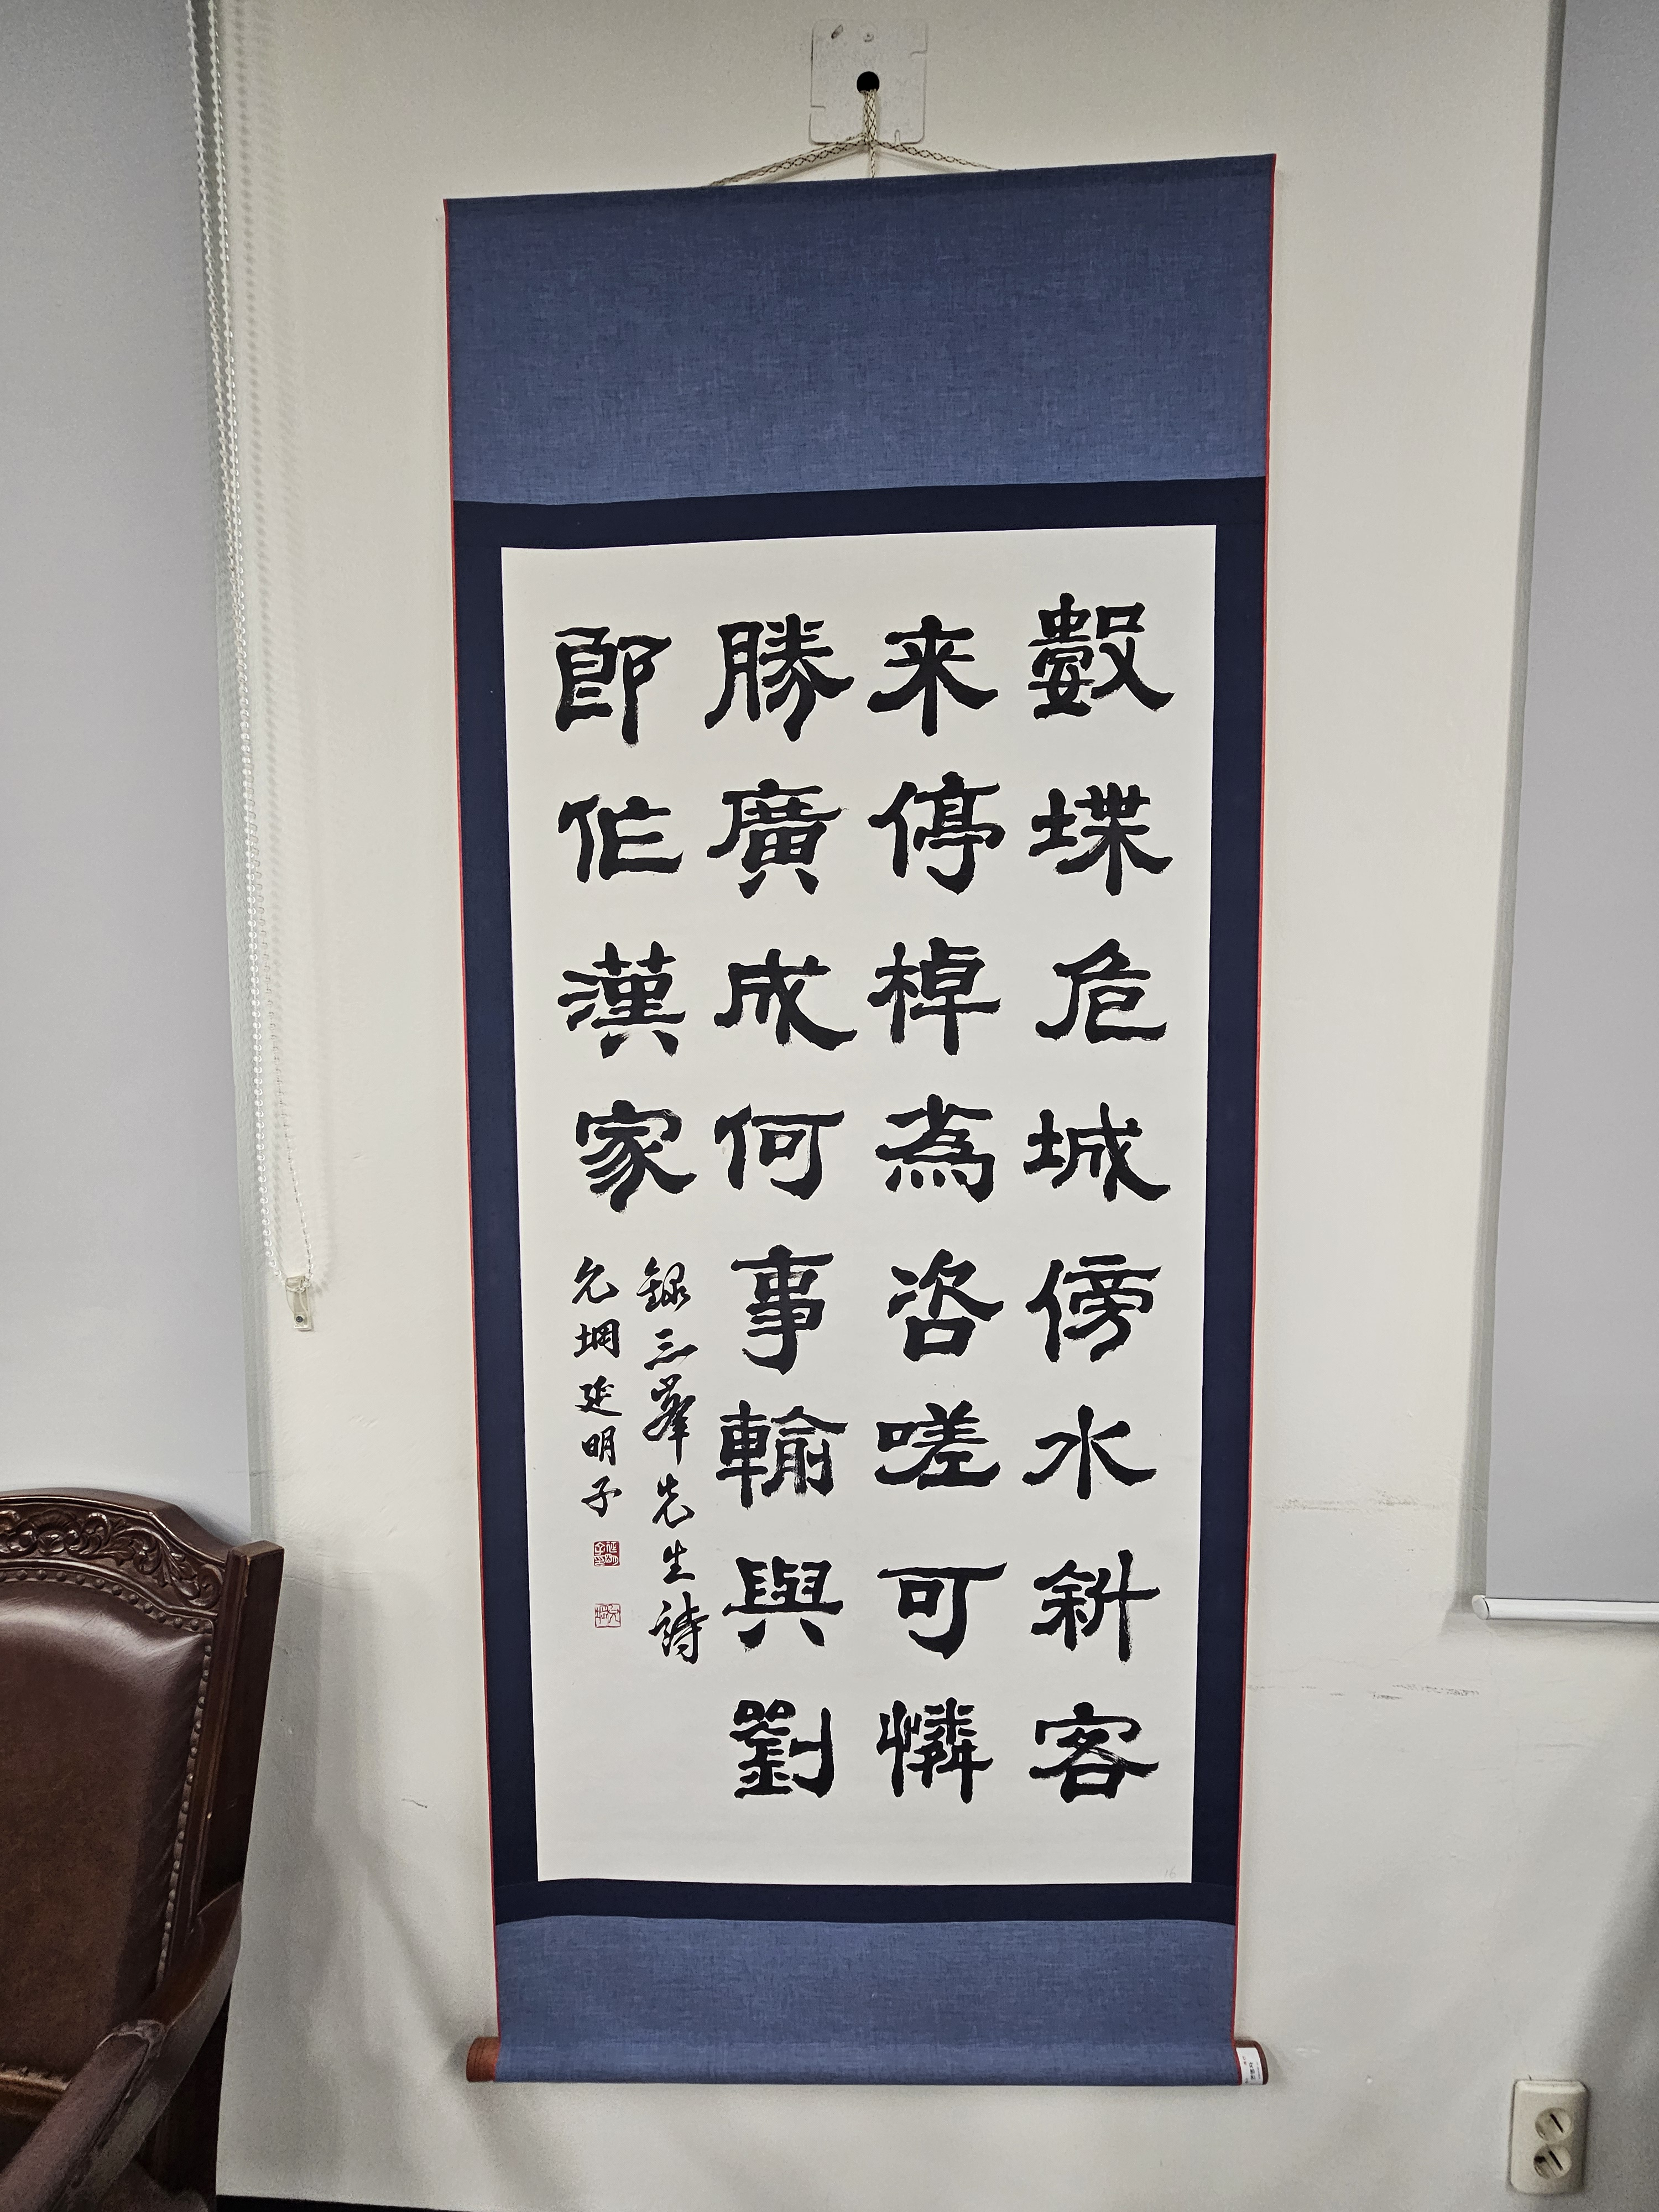 數堞危城傍水斜客
来停棹為咨嗟可憐
勝廣成何事輸與劉
郎作漢家
錄三峯先生詩
允堈延明子